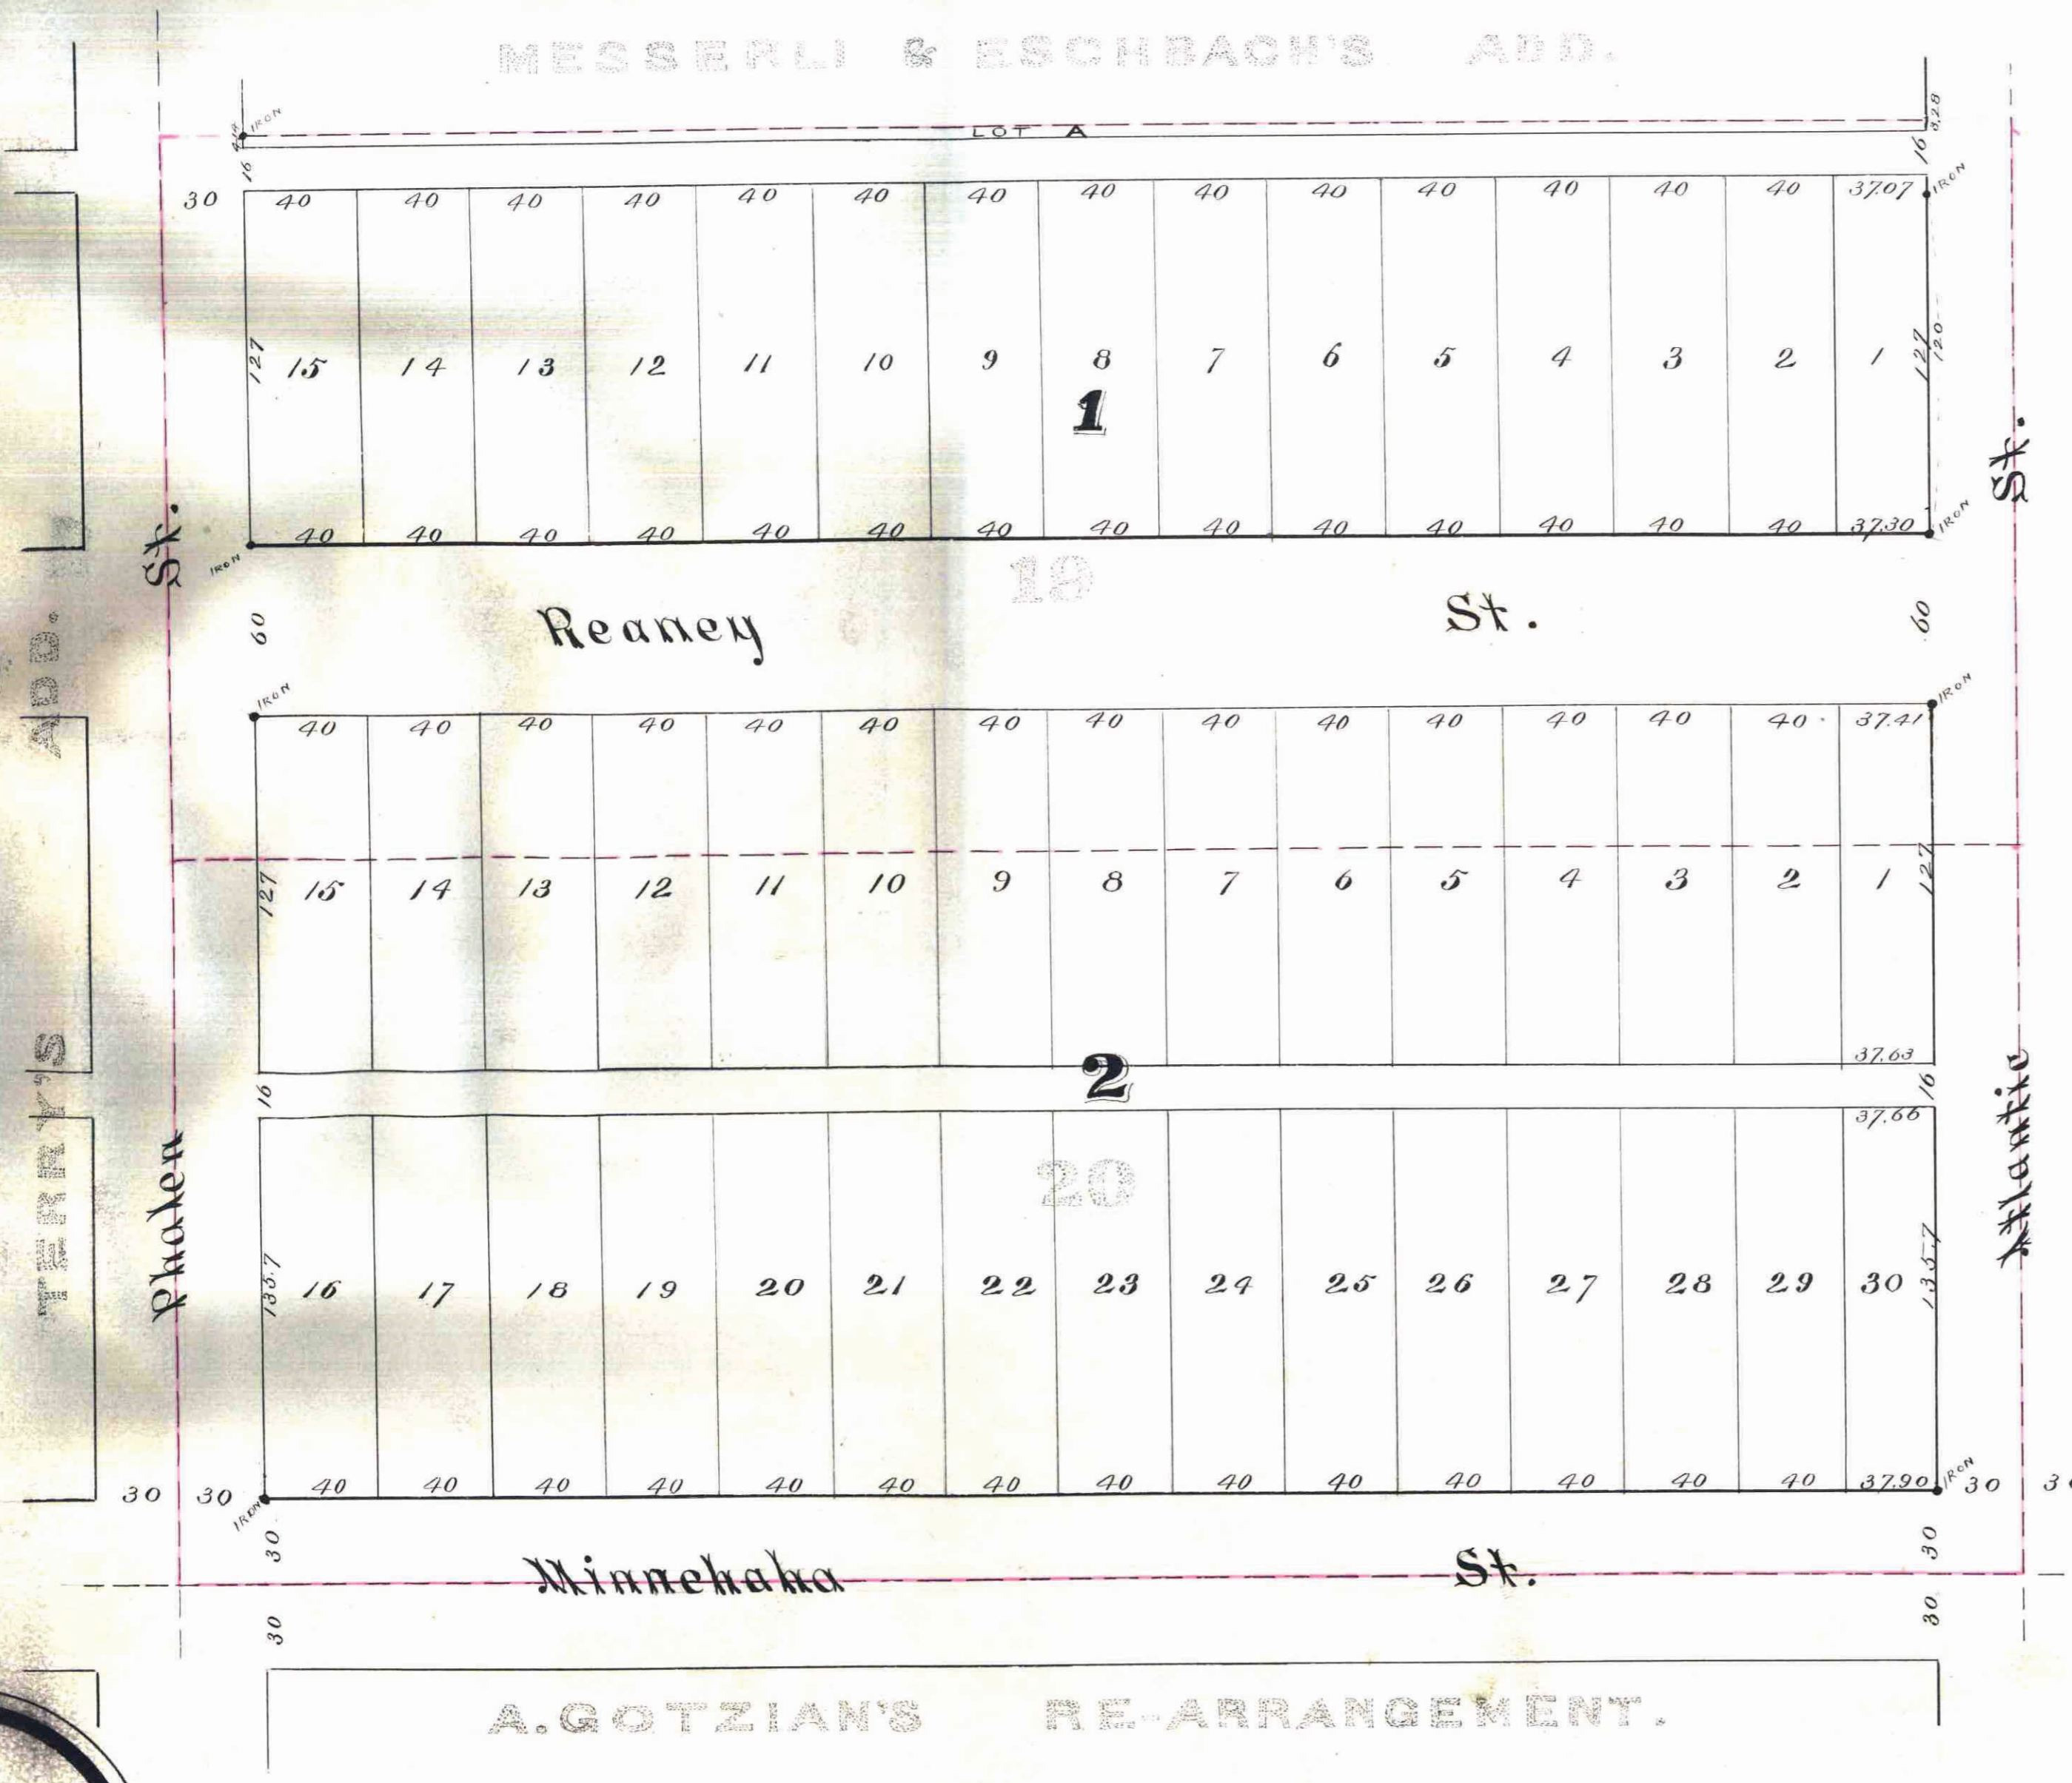 MESSERLI & ESCHBACH'S ADD.
IRON
LOT A
3.28
16 16
IRON
30 40 40 40 40 40 40 40 40 40 40 40 40 40 40 37.07
127 15 14 13 12 11 10 9 8 7 6 5 4 3 2 1 127 120
1
40 40 40 40 40 40 40 40 40 40 40 40 40 40 37.30
IRON IRON
19
60 Reaney St. 60
IRON IRON
40 40 40 40 40 40 40 40 40 40 40 40 40 40 37.41
127 15 14 13 12 11 10 9 8 7 6 5 4 3 2 1 127
37.63
16 2 16
37.66
20
133.7 16 17 18 19 20 21 22 23 24 25 26 27 28 29 30 135.7
30 30 40 40 40 40 40 40 40 40 40 40 40 40 40 40 37.90 30
IRON IRON
30 30
Minnehaha St.
30 30
A. GOTZIAN'S RE-ARRANGEMENT.
TERRY'S ADD.
Phalen St.
Atlantic St.